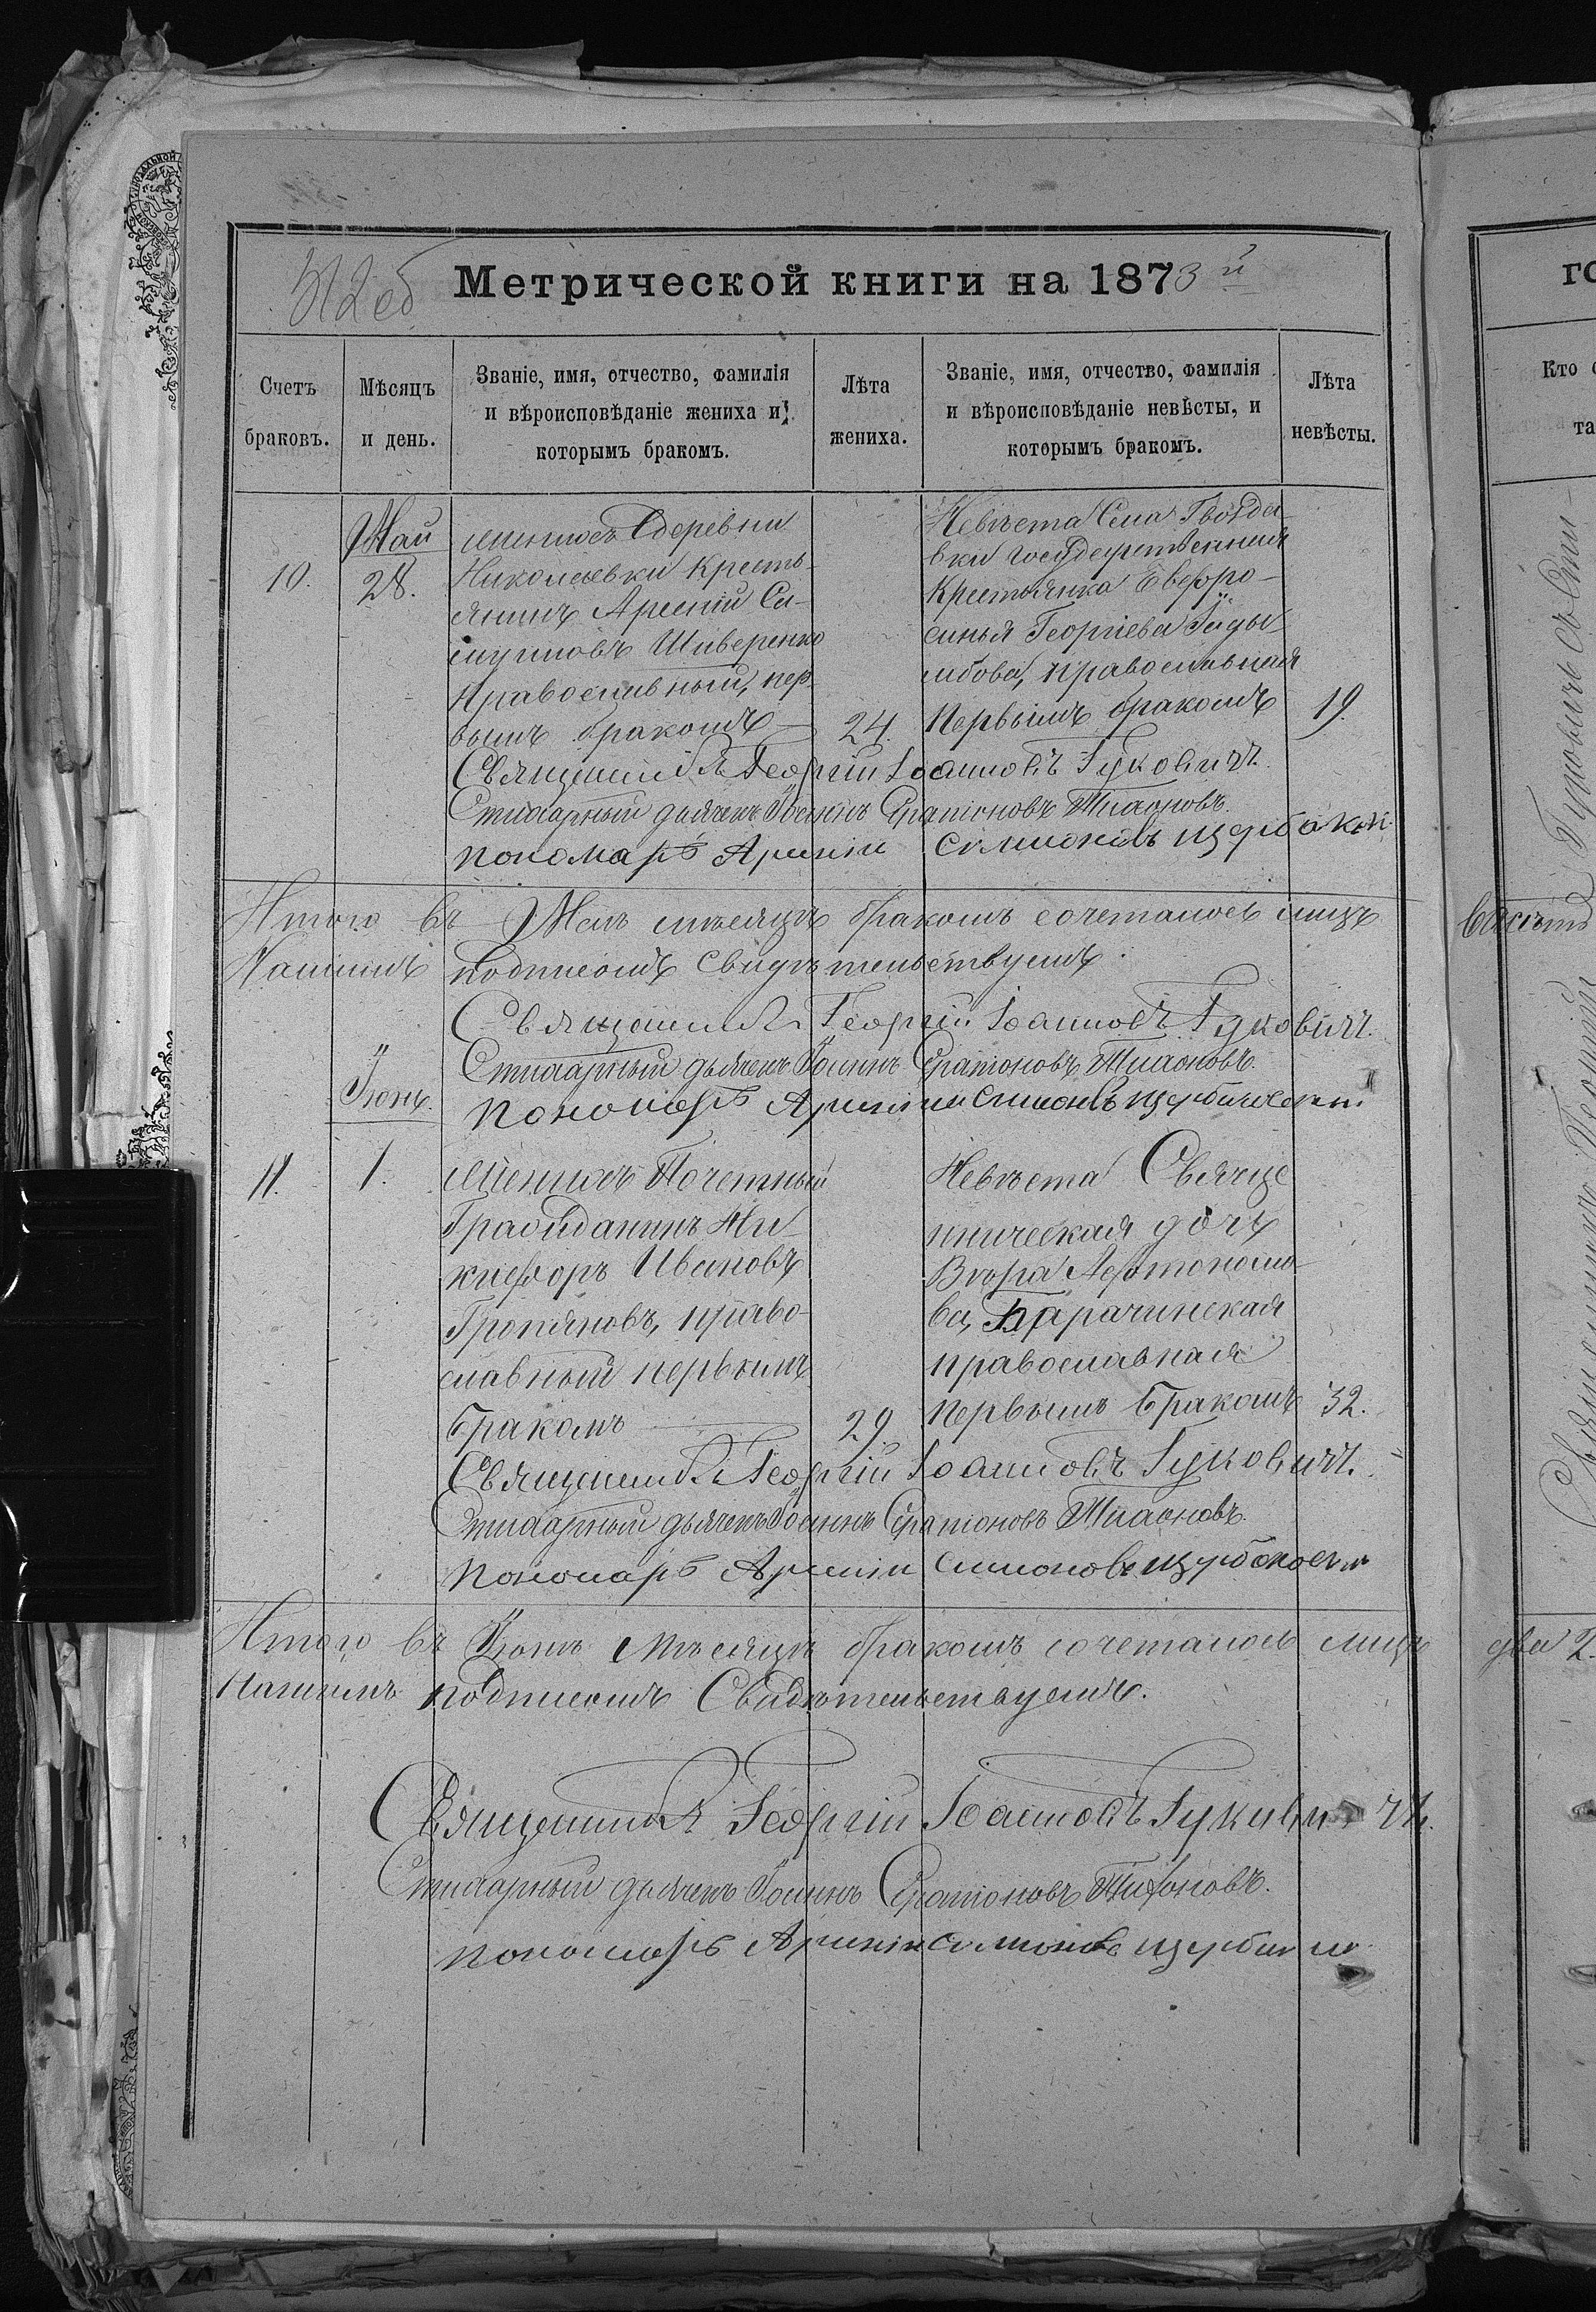 512об Метрической книги на 1873й
Счетъ браковъ.
Мѣсяцъ и день.
Званіе, имя, отчество, фамилія и вѣроисповѣданіе жениха и которымъ бракомъ.
Лѣта жениха.
Званіе, имя, отчество, фамилія и вѣроисповѣданіе невѣсты, и которымъ бракомъ.
Лѣта невѣсты.
10.
Май
28.
деревни
Николаевки Кресть-
янинъ Арсеній
Шиверенко
Православный, пер-
вымъ бракомъ
24.
Невѣста Села Гвозда-
вки государственная
Крестьянка Евфро-
синья Георгіева
православная
Первымъ бракомъ
19.
Священникъ Георгій Іоанновъ Гуковичъ.
Стихарный дьячекъ Іоаннъ Серапіоновъ Тихоновъ.
пономарь Арсеній Симоновъ
Итого въ Маѣ мѣсяцѣ бракомъ сочеталось лицъ
Нашимъ подписомъ Свидѣтельствуемъ.
Священникъ Георгій Іоанновъ Гуковичъ.
Стихарный дьячекъ Іоаннъ Серапіоновъ Тихоновъ.
Іюнь.
пономарь Арсеній Симоновъ
11.
1.
Женихъ Почетный
Гражданинъ Ни-
кифоръ Ивановъ
право-
славный первымъ
бракомъ
29
Невѣста Свяще
ническая дочь
Вѣра
православная
первымъ бракомъ
32.
Священникъ Георгій Іоанновъ Гуковичъ.
Стихарный дьячекъ Іоаннъ Серапіоновъ Тихоновъ.
пономарь Арсеній Симоновъ
Итого въ Іюнѣ Мѣсяцѣ бракомъ сочеталось лицъ
два 2.
Нашимъ подписомъ Свидѣтельствуемъ.
Священникъ Георгій Іоанновъ Гуковичъ.
Стихарный дьячекъ Іоаннъ Серапіоновъ Тихоновъ.
пономарь Арсеній Симоновъ
го
Кто с
та